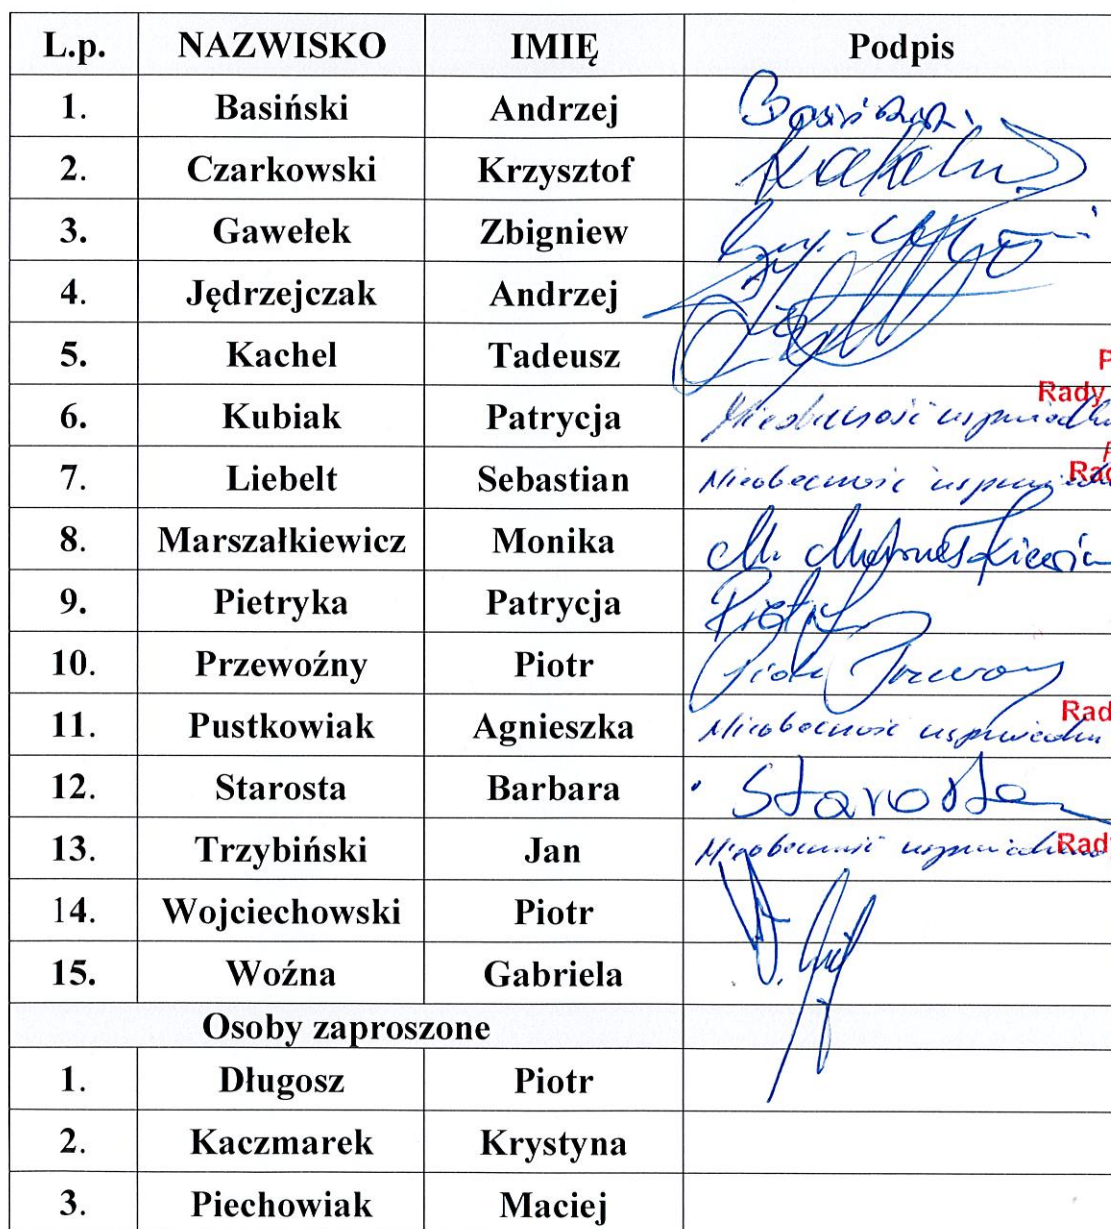 L.p. NAZWISKO IMIĘ Podpis
1. Basiński Andrzej Basiński
2. Czarkowski Krzysztof
3. Gawełek Zbigniew
4. Jędrzejczak Andrzej
5. Kachel Tadeusz
P
6. Kubiak Patrycja Nieobecność uspraiedli Rady
7. Liebelt Sebastian Nieobecność Rad
8. Marszałkiewicz Monika M. Marszałkiewicz
9. Pietryka Patrycja
10. Przewoźny Piotr Piotr
11. Pustkowiak Agnieszka Nieobecność Rad
12. Starosta Barbara Starosta
13. Trzybiński Jan Nieobecność Rad
14. Wojciechowski Piotr
15. Woźna Gabriela
Osoby zaproszone
1. Długosz Piotr
2. Kaczmarek Krystyna
3. Piechowiak Maciej